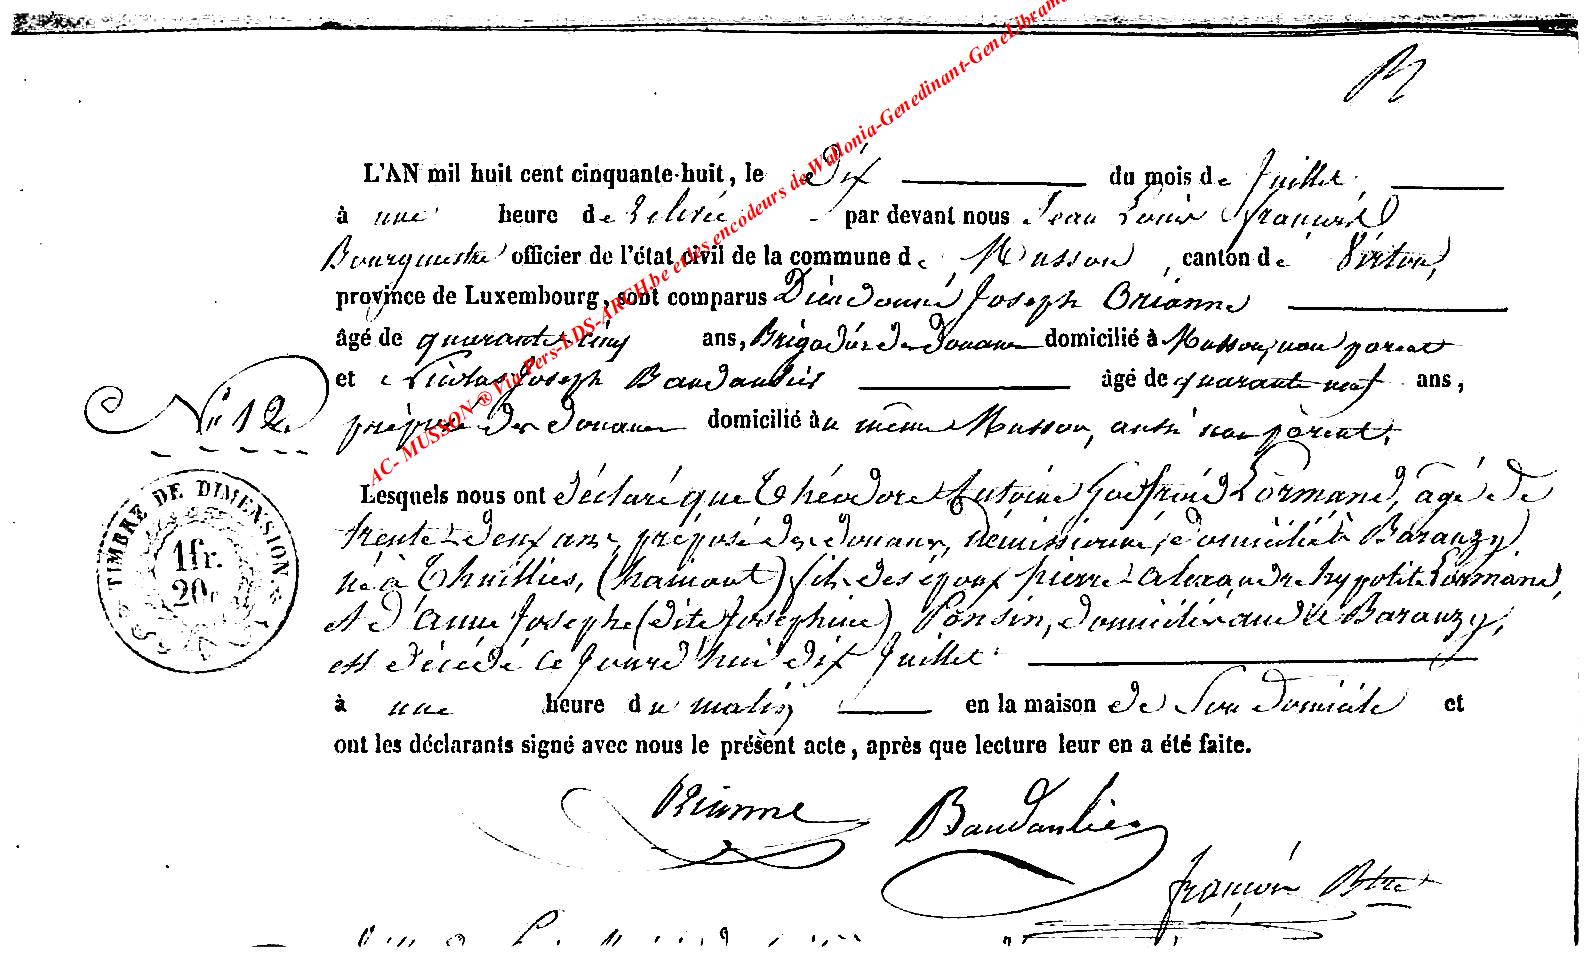 L'AN mil huit cent cinquante-huit, le Dix du mois de Juillet,
à une heure de relevée par devant nous Jean Louis François
Bourgmestre officier de l'état civil de la commune de Musson, canton de Virton,
province de Luxembourg, sont comparus Dieudonné Joseph Brianne
âgé de quarante cinq ans, Brigadier des Douanes domicilié à Musson, non parent
et Nicolas Joseph Baudaulier âgé de quarante neuf ans,
N° 12.
préposé des Douanes domicilié au même Musson, aussi non parent.
Lesquels nous ont déclaré que Théodore Antoine Godfroid Lormand, âgé de
trente-deux ans, préposé des douanes, démissionné, domicilié à Baranzy,
né à Thuillies, (hainaut) fils des époux pierre-alexandre hypolite Lormand,
et d'anne Josephe (dite Joséphine) Ponsin, domiciliés audit Baranzy,
est décédé ce jourd'hui dix Juillet
à une heure du matin en la maison de Son domicile et
ont les déclarants signé avec nous le présent acte, après que lecture leur en a été faite.
TIMBRE DE DIMENSION.
1 fr.
20c
Brianne Baudaulier
françois Btre
AC- MUSSON ® Via Pers-LDS-ARCH.be et les encodeurs de Wallonia-Genedinant-GeneLibrame